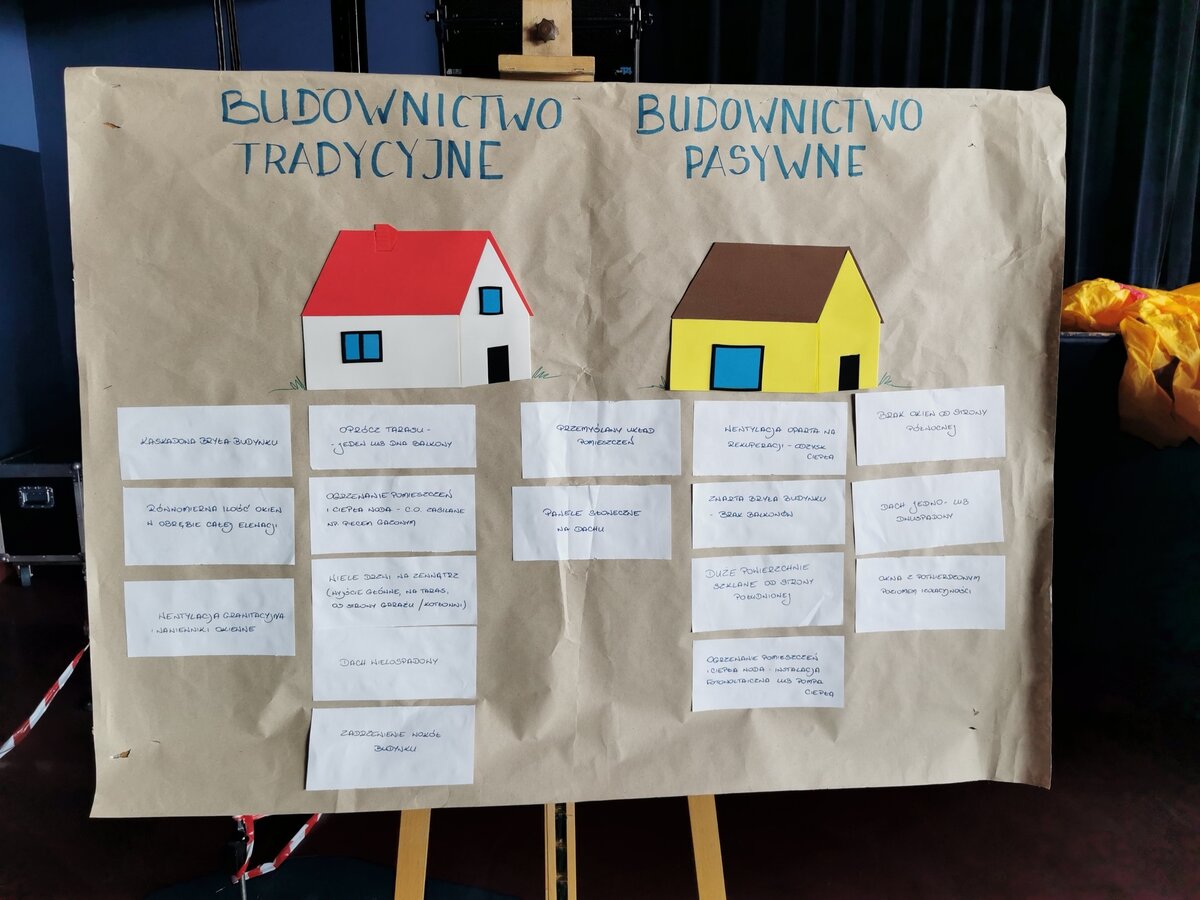 BUDOWNICTWO
TRADYCYJNE
KASKADOWA BRYŁA BUDYNKU
RÓWNOMIERNA ILOŚĆ OKIEN
W OBRĘBIE CAŁEJ ELEWACJI
WENTYLACJA GRAWITACYJNA
I NAWIEWNIKI OKIENNE
OPRÓCZ TARASU -
- JEDEN LUB DWA BALKONY
OGRZEWANIE POMIESZCZEŃ
I CIEPŁA WODA - C.O. ZASILANE
NP. PIECEM GAZOWYM
WIELE DRZWI NA ZEWNĄTRZ
(WYJŚCIE GŁÓWNE, NA TARAS,
OD STRONY GARAŻU / KOTŁOWNI)
DACH WIELOSPADOWY
ZADRZEWIENIE WOKÓŁ
BUDYNKU
BUDOWNICTWO
PASYWNE
PRZEMYŚLANY UKŁAD
POMIESZCZEŃ
PANELE SŁONECZNE
NA DACHU
WENTYLACJA OPARTA NA
REKUPERACJI - ODZYSK
CIEPŁA
ZWARTA BRYŁA BUDYNKU
- BRAK BALKONÓW
DUŻE POWIERZCHNIE
SZKLANE OD STRONY
POŁUDNIOWEJ
OGRZEWANIE POMIESZCZEŃ
I CIEPŁA WODA - INSTALACJA
FOTOWOLTAICZNA LUB POMPA
CIEPŁA
BRAK OKIEN OD STRONY
PÓŁNOCNEJ
DACH JEDNO- LUB
DWUSPADOWY
OKNA Z POTWIERDZONYM
POZIOMEM IZOLACYJNOŚCI